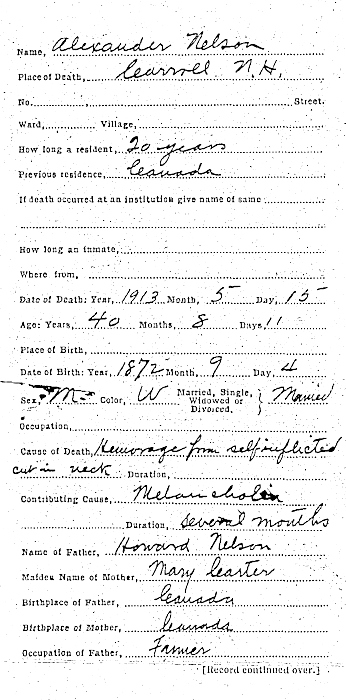 Name, Alexander Nelson
Place of Death, Carroll N.H.
No. , Street.
Ward, Village,
How long a resident, 20 years
Previous residence, Canada
If death occurred at an institution give name of same
How long an inmate,
Where from,
Date of Death: Year, 1913 Month, 5 Day, 15
Age: Years, 40 Months, 8 Days, 11
Place of Birth,
Date of Birth: Year, 1872 Month, 9 Day, 4
Sex, M Color, W Married, Single, Widowed or Divorced, } Married
Occupation,
Cause of Death, Hemorage from self inflicted
cut in neck Duration,
Contributing Cause, Melancholia
Duration, several months
Name of Father, Howard Nelson
Maiden Name of Mother, Mary Carter
Birthplace of Father, Canada
Birthplace of Mother, Canada
Occupation of Father, Farmer
[Record continued over.]